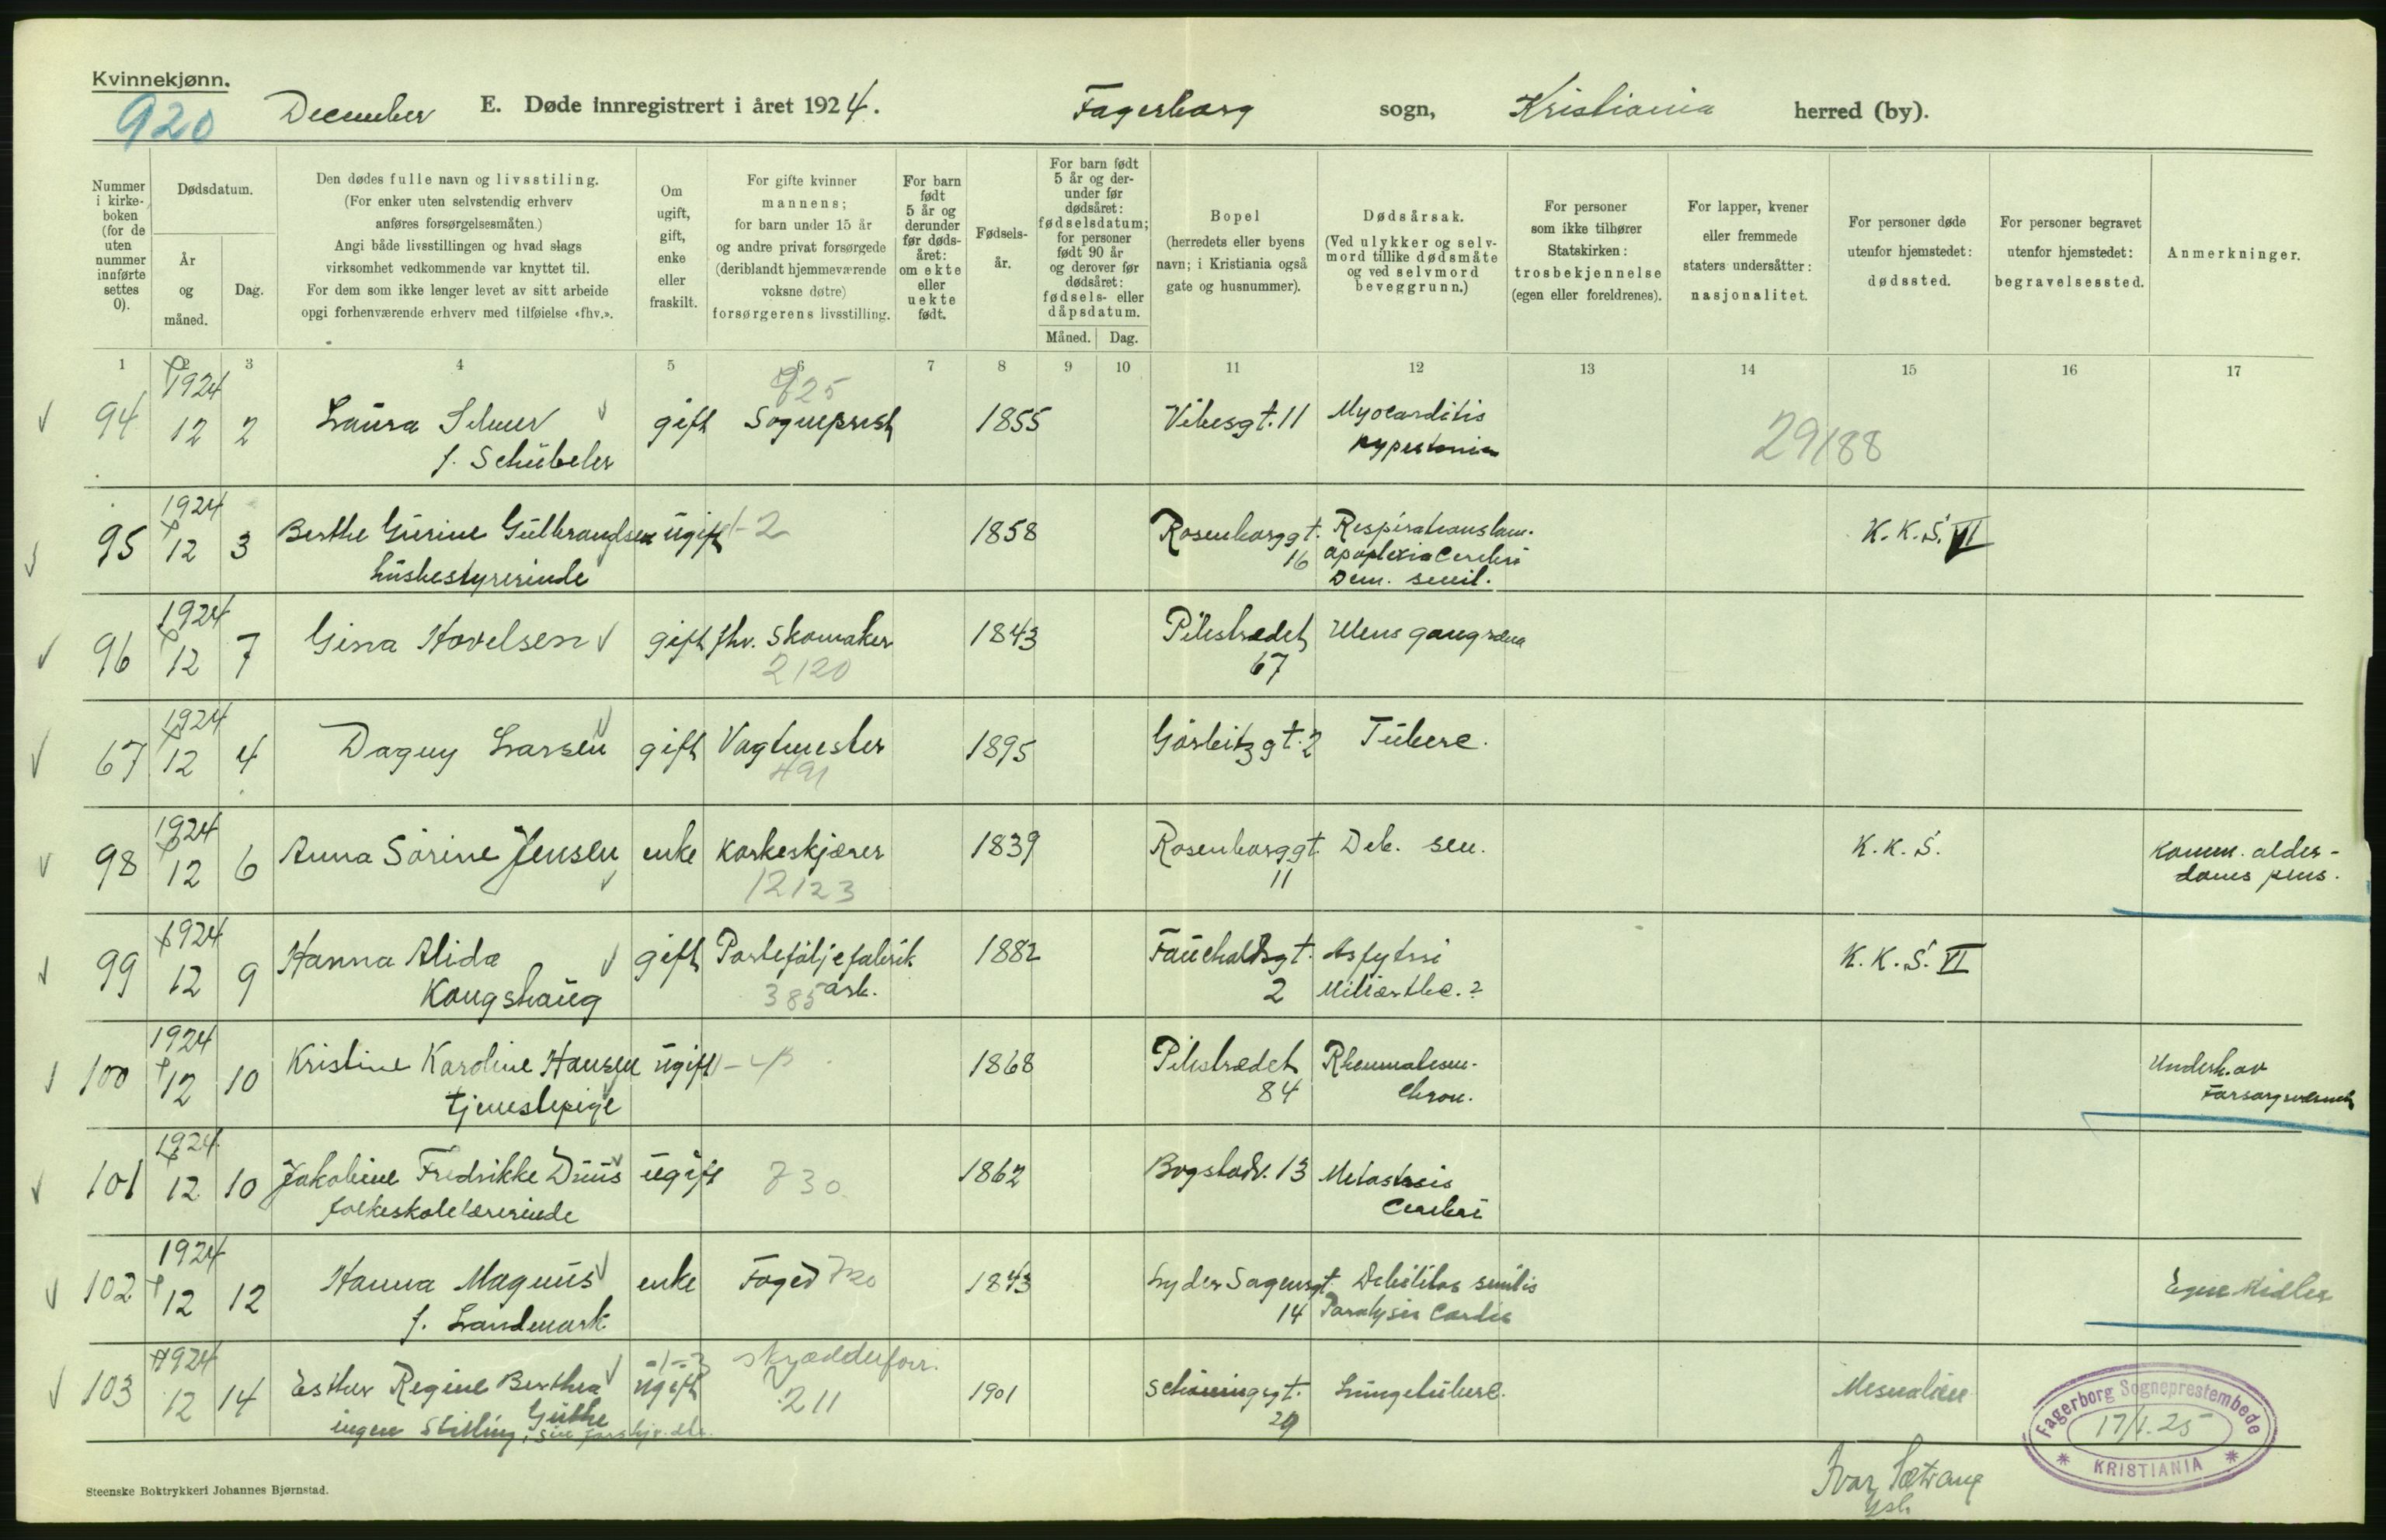 Kvinnekjønn.
920
December E. Døde innregistrert i året 1924. Fagerborg sogn, Kristiania herred (by).
Nummer i kirke-boken (for de uten nummer innførte settes 0).
Dødsdatum.
År og måned.
Dag.
Den dødes fulle navn og livsstiling.
(For enker uten selvstendig erhverv
anføres forsørgelsesmåten.)
Angi både livsstillingen og hvad slags
virksomhet vedkommende var knyttet til.
For dem som ikke lenger levet av sitt arbeide
opgi forhenværende erhverv med tilføielse «fhv.».
Om ugift, gift, enke eller fraskilt.
For gifte kvinner
mannens;
for barn under 15 år
og andre privat forsørgede
(deriblandt hjemmeværende
voksne døtre)
forsørgerens livsstilling.
For barn født 5 år og derunder før døds-året: om ekte eller uekte født.
Fødsels-år.
For barn født 5 år og der-under før dødsåret: fødselsdatum; for personer født 90 år og derover før dødsåret: fødsels- eller dåpsdatum.
Måned. Dag.
Bopel
(herredets eller byens
navn; i Kristiania også
gate og husnummer).
Dødsårsak.
(Ved ulykker og selv-
mord tillike dødsmåte
og ved selvmord
beveggrunn.)
For personer
som ikke tilhører
Statskirken:
trosbekjennelse
(egen eller foreldrenes).
For lapper, kvener
eller fremmede
staters undersåtter:
nasjonalitet.
For personer døde
utenfor hjemstedet:
dødssted.
For personer begravet
utenfor hjemstedet:
begravelsessted.
Anmerkninger.
1 2 3 4 5 6 7 8 9 10 11 12 13 14 15 16 17
1924 925
94 12 2 Laura gift Sogneprest 1855 Vibesgt. 11 Myocarditis
f. Schübeler 29/88
1924
95 12 3 Berthe Gurine Gulbrandsen ugift -2 1858 Rosenborggt. 16 K.K.S. VI
husbestyrerinde apoplexia Cerebri
Dem. senil.
1924
96 12 7 Gina Hovelsen gift fhv. Skomaker 1843 Pilestrædet Ulcus gangræna
2120 67
1924
67 12 4 Dagny Larsen gift Vagtmester 1895 Görbitzgt. 2 Tuberc.
491
1924
98 12 6 Anna Sörine Jensen enke korkeskjærer 1839 Rosenborggt. Deb. sen. K.K.S. Komm. alder-
12123 11 doms pens.
1924
99 12 9 Hanna Alida gift Porteføljefabrik 1882 Fauchaldsgt. K.K.S. VI
Kongshaug 385 arb. 2
1924
100 12 10 Kristine Karoline Hansen ugift 1868 Pilestrædet Underh. av
tjenestepige 84 Chron. Forsorgsvæsenet
1924
101 12 10 Jakobine Fredrikke Duus ugift 730 1862 Bogstadv. 13 Metastasis
folkeskolelærerinde Cerebri
1924
102 12 12 Hanna Magnus enke Foged 720 1843 Lyder Sagensgt. Debilitas senilis Egne Midler
f. Landmark 14 Paralysis Cordis
1924 skrædderforr.
103 12 14 Esther Regine Berthea ugift 211 1901 Schøningsgt. Lungetuberc. Mesnalien
Guthe 29
ingen Stilling,
Fagerborg Sogneprestembede
17/1.25
KRISTIANIA
Ivar Sætrang
Steenske Boktrykkeri Johannes Bjørnstad.